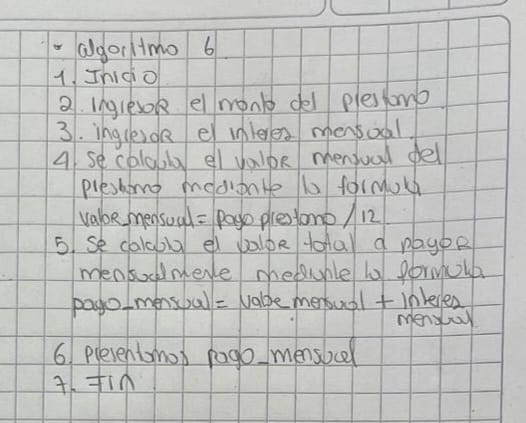 - algoritmo 6
1. Inicio
2. ingresar el monto del prestamo
3. ingresar el interes mensual.
4. se calcula el valor mensual del
prestamo mediante la formula
valor_mensual = pago prestamo / 12
5. se calcula el valor total a pagar
mensualmente mediante la formula
pago_mensual = valor mensual + interes
mensual
6. presentamos pago_mensual
7. Fin